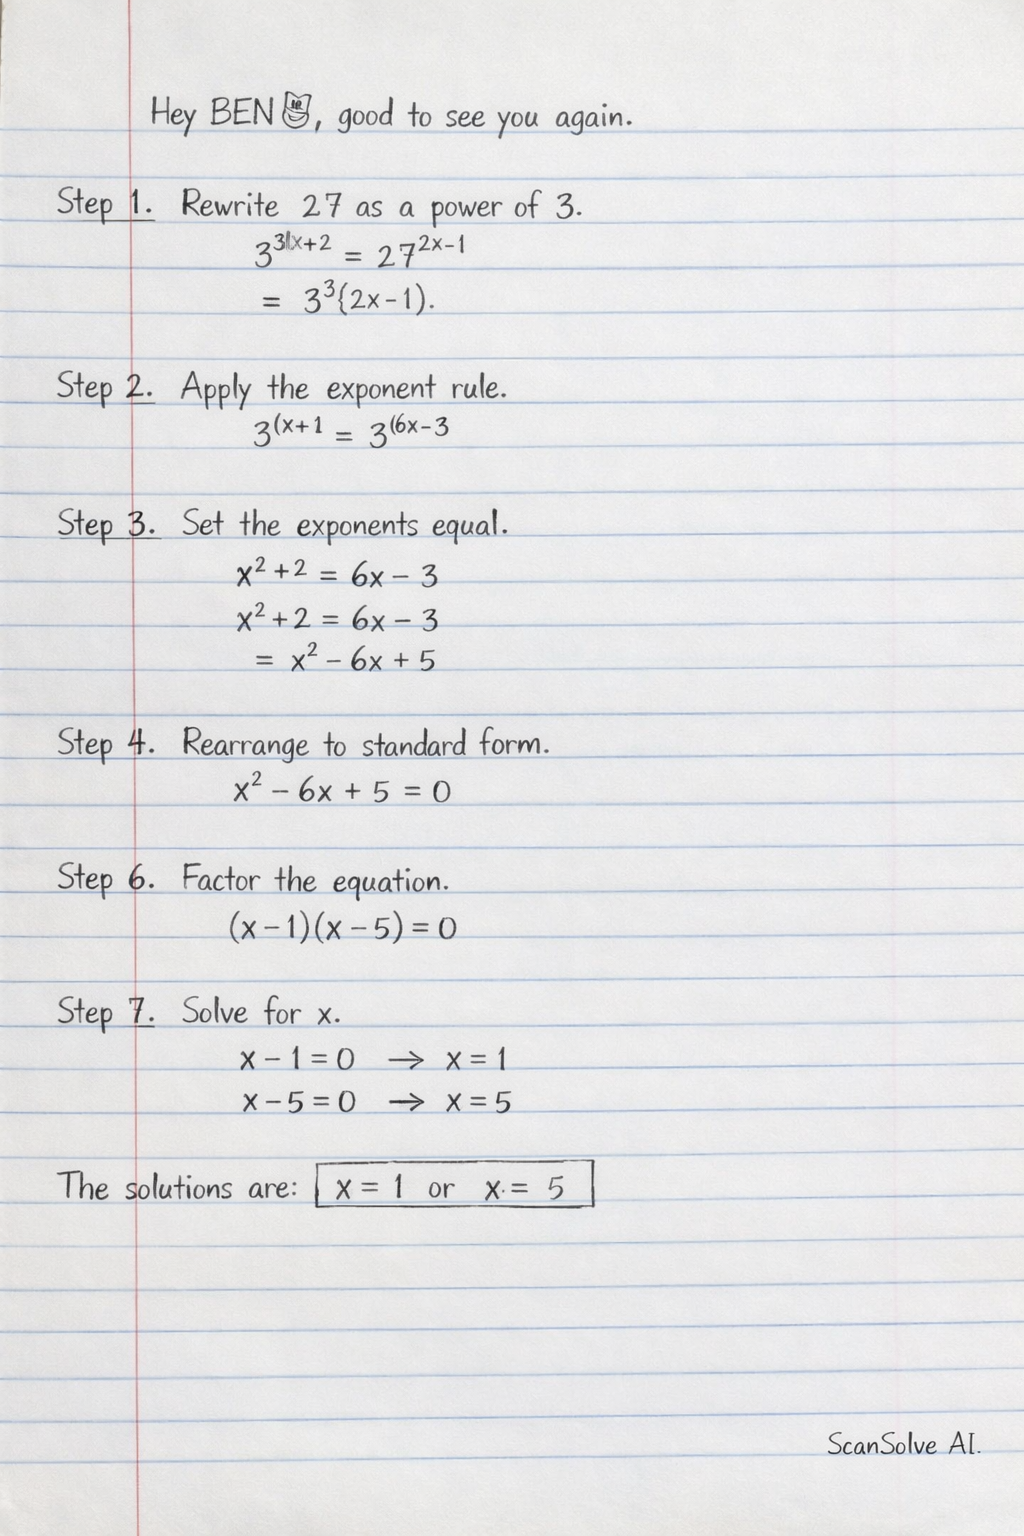 Hey BEN, good to see you again.
Step 1. Rewrite 27 as a power of 3.
= 27^2x-1
= 3^3{2x-1).
Step 2. Apply the exponent rule.
3^(x+1 = 3^(6x-3
Step 3. Set the exponents equal.
x²+2 = 6x-3
x²+2 = 6x-3
= x²-6x+5
Step 4. Rearrange to standard form.
x²-6x+5=0
Step 6. Factor the equation.
(x-1)(x-5)=0
Step 7. Solve for x.
x-1=0 → x=1
x-5=0 → x=5
The solutions are: x=1 or x.= 5
ScanSolve AI.